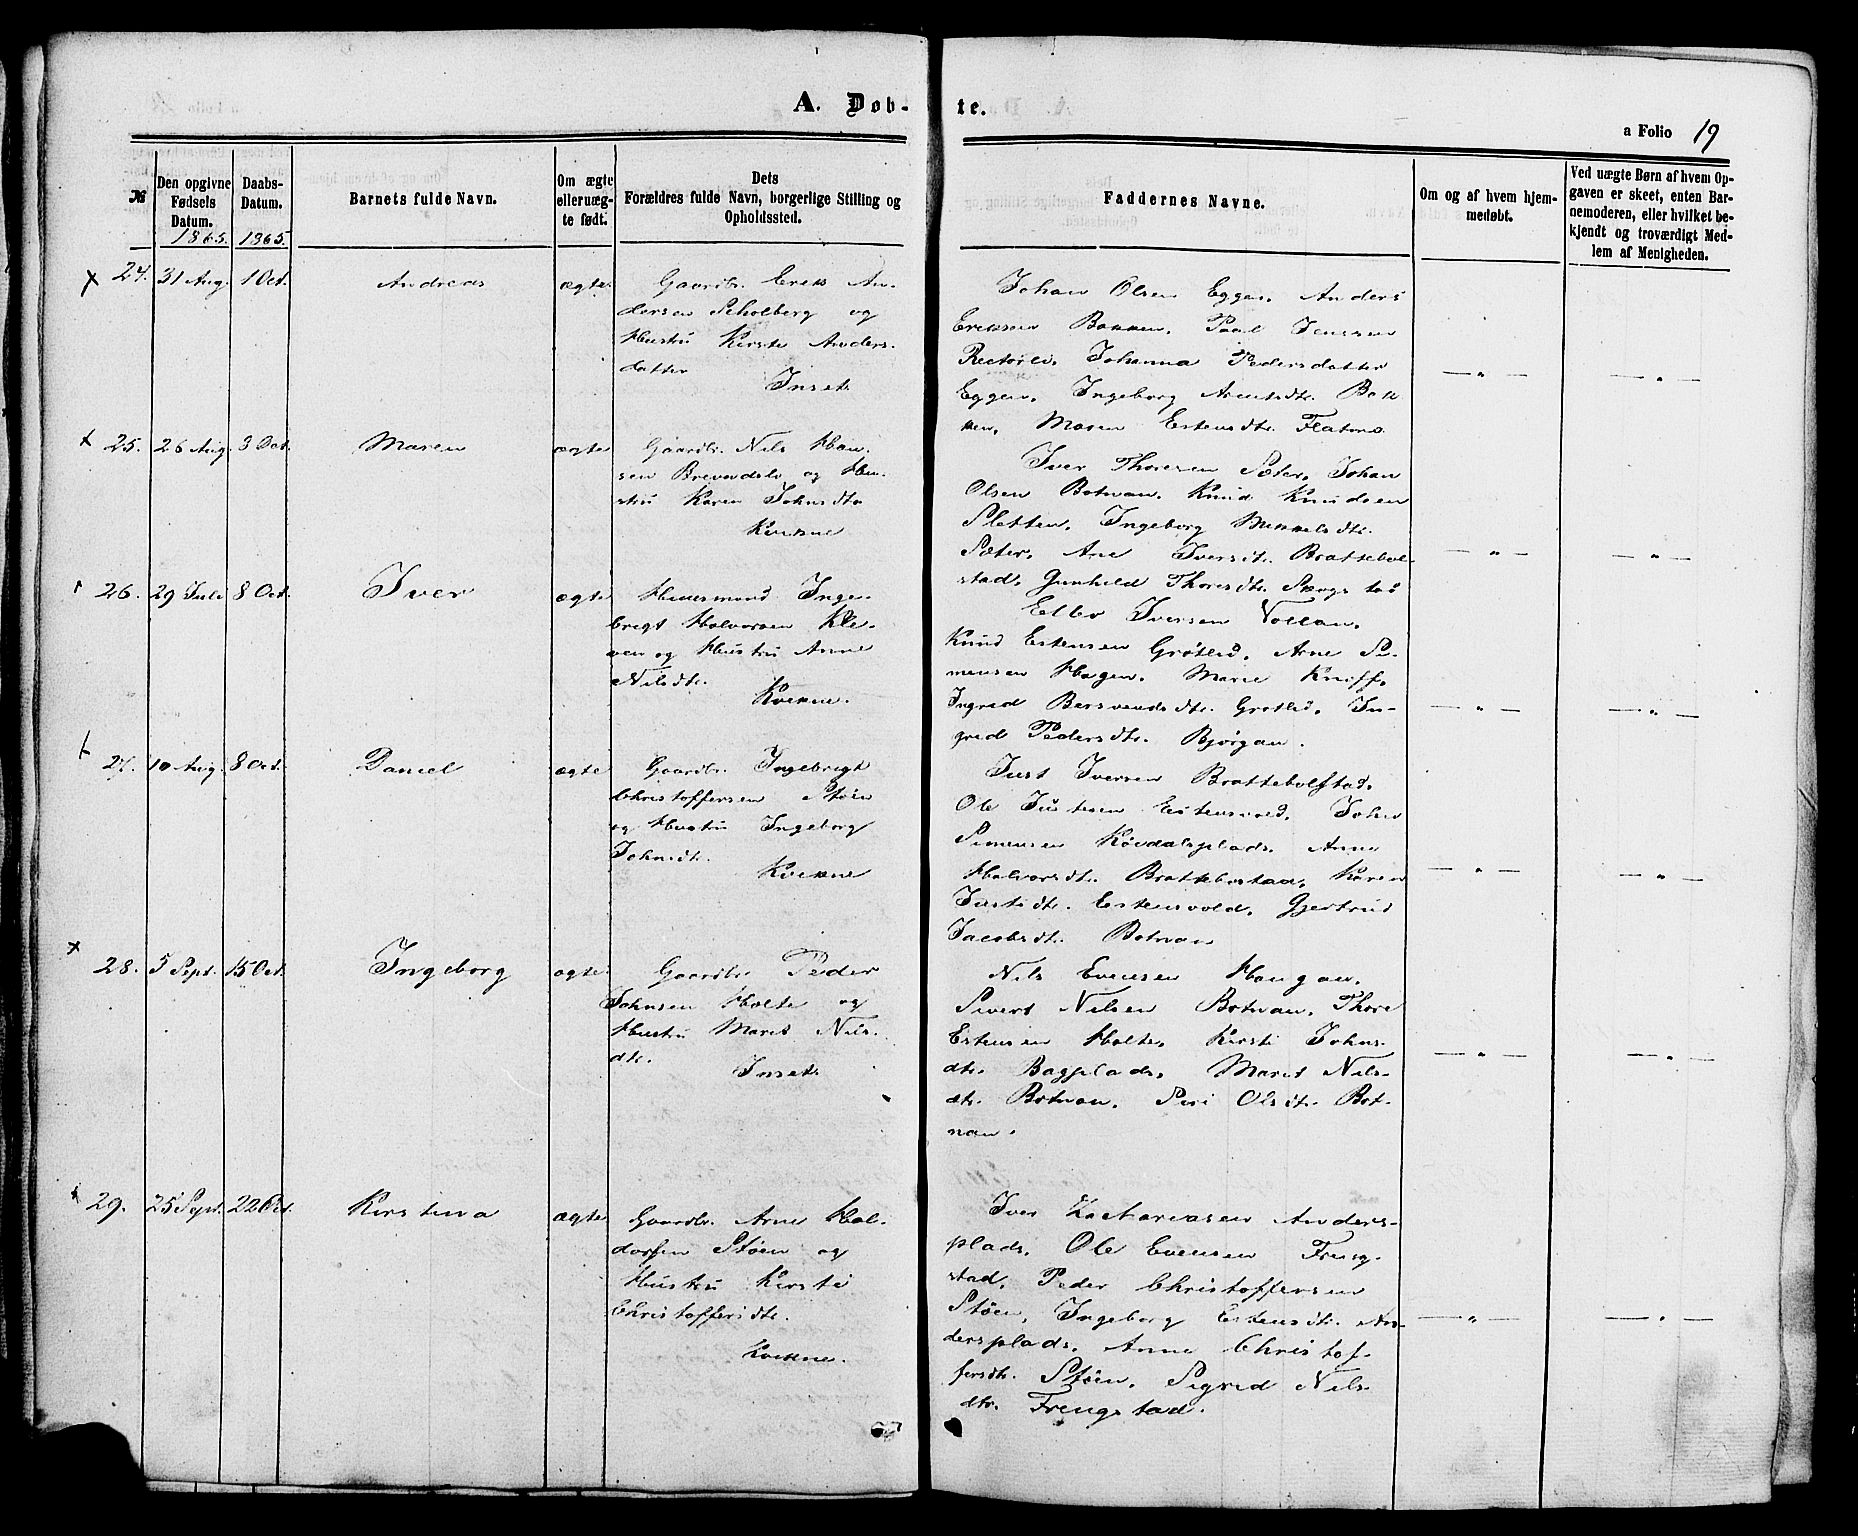 A. Døb-te.
a Folio 19
№
Den opgivne Fødsels Datum. 1865.
Daabs-Datum. 1865.
Barnets fulde Navn.
Om ægte eller uægte født.
Dets Forældres fulde Navn, borgerlige Stilling og Opholdssted.
Faddernes Navne.
Om og af hvem hjemmedøbt.
Ved uægte Børn af hvem Opgaven er skeet, enten Barnemoderen, eller hvilket bekjendt og troværdigt Medlem af Menigheden.
24. 31 Aug. 1 Oct. Andreas ægte
Gaardbr. Erik An-
dersen Scholberg og
Hustru Kirsti Anders-
datter
Inset.
Johan Olsen Eggen, Anders
Eriksen Bakken, Paal Jenssen
Johanna Pedersdatter
Eggen, Ingeborg Arntsdtr. Bak
ken, Maren Estensdtr.
25. 26 Aug. 3 Oct. Maren ægte
Gaardbr. Nils Han-
sen og Hu-
stru Karen Johnsdtr
Kvikne
Iver Thoresen Sæter, Johan
Olsen Botnan, Knud Knudsen
Sletten, Ingeborg Mikkelsdtr.
Sæter, Ane Iversdt. Brattebol-
stad, Gunhild Thoresdtr.
26. 29 Juli 8 Oct. Iver ægte
Huusmand Inge-
brigt Halvorsen Kle-
ven og Hustru Anne
Nilsdtr.
Kvikne.
Iversen Vollan,
Knud Estensen Grøtlid, Arne Si-
mensen Hagen, Marie Kniff,
Ingrid Bersvendsdtr. Grøtlid, In-
grid Pedersdtr. Bjørgan.
27. 10 Aug. 8 Oct. Daniel ægte
Gaardbr. Ingebrigt
Christoffersen Støen
og Hustru Ingeborg
Johnsdtr.
Kvikne
Just Iversen Brattebolstad,
Ole Justesen Estensvold, John
Simensen Anne
Halvorsdtr. Karen
Justsdtr. Estensvold, Gjertrud
Jacobsdtr. Botnan
28. 5 Sept. 15 Oct. Ingeborg ægte
Gaardbr. Peder
Johnsen Holte og
Hustru Marit Nils-
dtr.
Inset.
Nils Evensen Haugan,
Sivert Nilsen Botnan, Thore
Estensen Holte, Kirsti Johns-
dtr. Marit Nils-
dtr. Botnan, Siri Olsdtr. Bot-
nan.
29. 25 Sept. 22 Oct. Kirstina ægte
Gaardbr. Arne Hal-
dorsen Støen og
Hustru Kirsti
Christoffersdtr.
Kvikne.
Iver Zachariasen Anders-
plads, Ole Evensen Freng-
stad, Peder Christoffersen
Støen, Ingeborg Estensdtr. An-
dersplads, Anne Christof-
fersdtr. Støen, Sigrid Nils-
dtr. Frengstad.